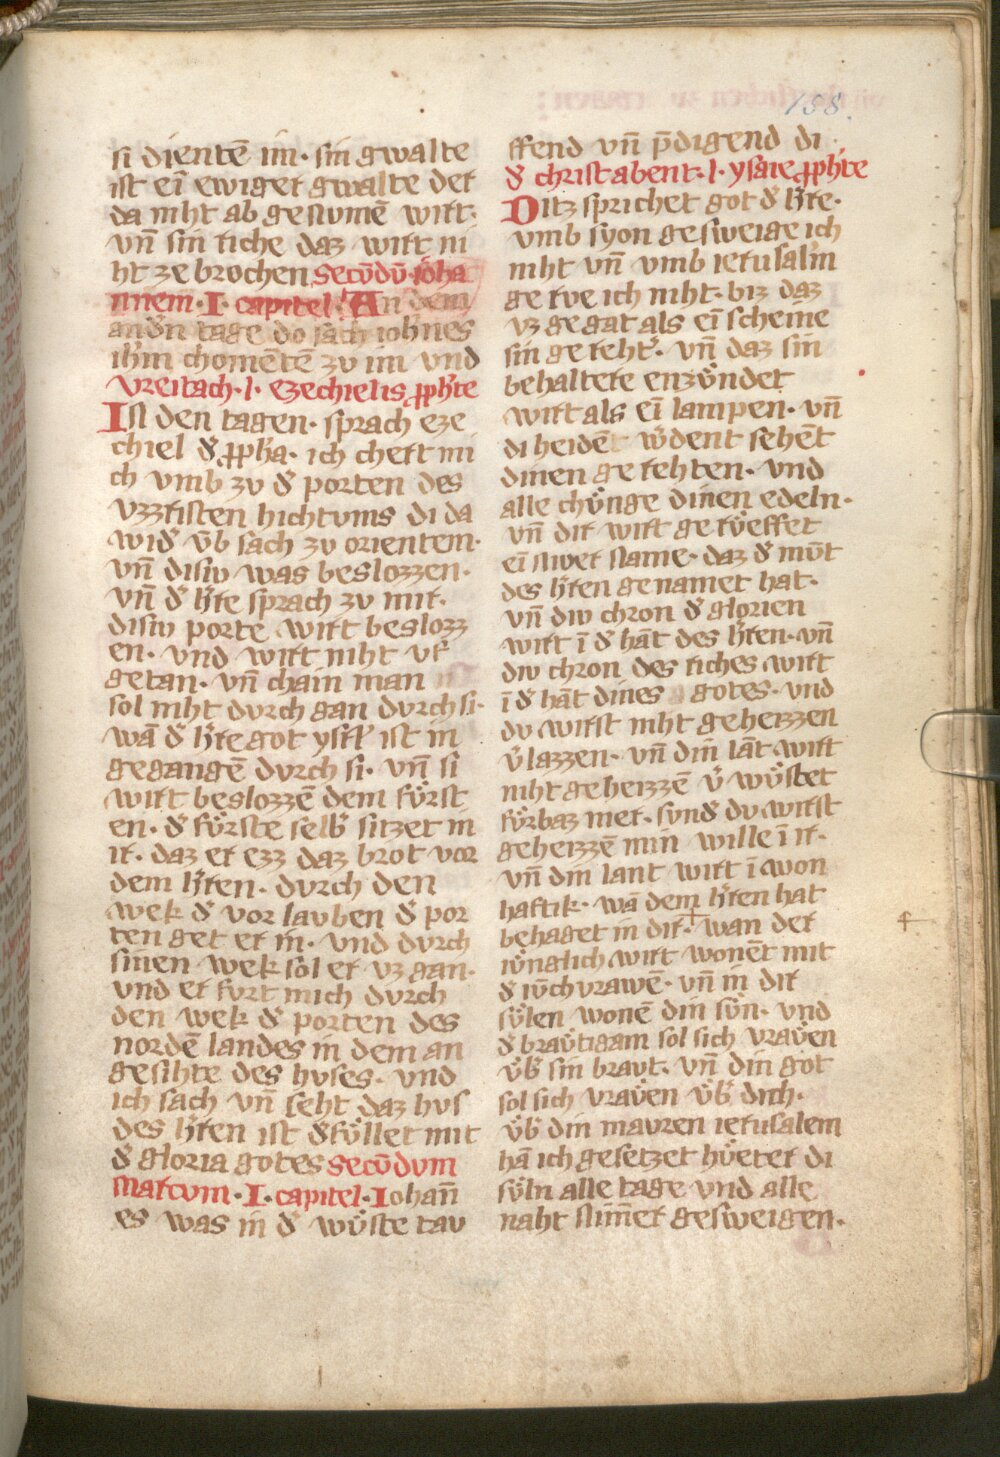 158.
si dientē im· sin gwalte
ist eī ewiger gwalte der
da niht ab genumē wirt·
vn̄ sin riche daz wirt ni
ht ze brochen secūdū· ioha
nnem· I· capitel· An dem
andˀn tage do sach ioh̄nes
ih̄m chomētē zv im vnd
vreitach· l· ezechielis ꝓph̄te
In den tagen· sprach eze
chiel dˀ ꝓph̄a· ich chert mi
ch vmb zv dˀ porten des
vzzristen hichtvms di da
widˀ v̄b sach zv orientem·
vn̄ disiv was beslozzen·
vn̄ dˀ h̄re sprach zv mir·
disiv porte wirt beslozz
en· vnd wirt niht vf
getan· vn̄ chain man
sol niht dvrch gan dvrch si·
wā dˀ h̄re got ysrl̄ ist in
gegangē dvrch si· vn̄ si
wirt beslozzē dem fvͤrst
en· dˀ fvͤrste selbˀ sitzet in
ir· daz er ezz daz brot vor
dem h̄ren· dvrch den
wek dˀ vor lavben dˀ por
ten get er in· vnd dvrch
sinen wek sol er vz gan·
vnd er fvrt mich dvrch
den wek dˀ porten des
nordē landes in dem an
gesihte des hvses· vnd
ich sach vn̄ seht daz hvs
des h̄ren ist dˀfvͤllet mit
dˀ gloria gotes secūdvm
Marcvm· I· capitel· Iohan̄
es was in dˀ wvͤste tav
ffend vn̄ p̄digend di
dˀ christabent· l· ysaie ꝓph̄te
Ditz sprichet got dˀ h̄re·
vmb syon gesweige ich
niht vn̄ vmb ierusalm̄
gerve ich niht· biz daz
vz gegat als eī scheine
sin gerehtˀ· vn̄ daz sin
behaltere enzvͤndet
wirt als eī lampen· vn̄
di heidē wˀdent sehēt
dinen gerehten· vnd
alle chvͤnge dinen edeln·
vn̄ dir wirt gervͤeffet
eī niwer name· daz dˀ mūt
des h̄ren genamet hat·
vn̄ div chron dˀ glorien
wirt ī dˀ hāt des h̄ren· vn̄
div chron des riches wirt
ī dˀ hāt dines gotes· vnd
dv wirst niht geheizzen
vˀlazzen· vn̄ din̄ lāt wirt
niht geheizzē vˀ wvͤstet
fvͤrbaz mer· svndˀ dv wirst
geheizzē min wille ī ir·
vn̄ din lant wirt ī won
haftik· wā dem h̄ren hat
behaget in dir· wan der
ivͤnglich wirt wonēt mit
dˀ ivͤchvrawē· vn̄ in dir
svͤlen wonē din svͤn· vnd
dˀ bravͤtigam sol sich vravͤen
vͤbˀ sin bravt· vn̄ din got
sol sich vravͤen vͤbˀ dich·
vͤbˀ din mavren ierusalem
hā ich gesetzet hvͤeter di
svͤln alle tage vnd alle
naht nim̄er gesweigen·